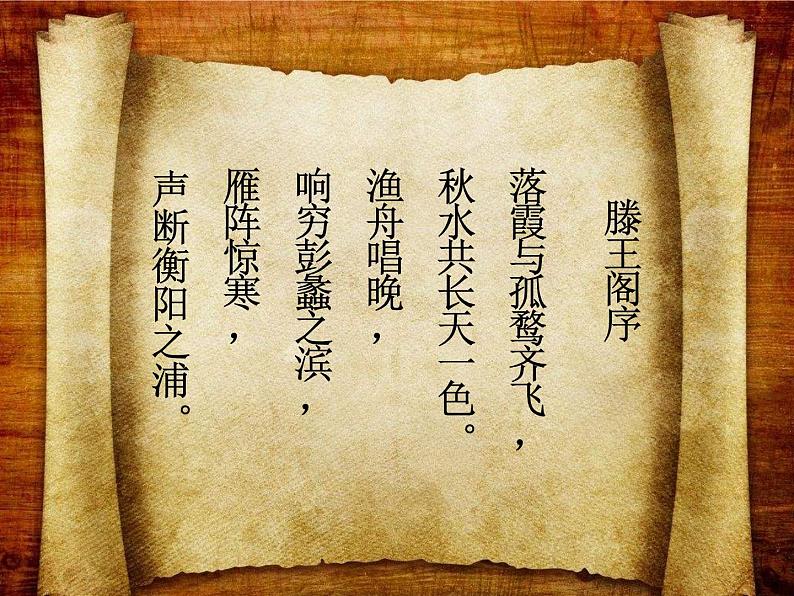 滕王阁序
落霞与孤鹜齐飞，
秋水共长天一色。
渔舟唱晚，
响穷彭蠡之滨，
雁阵惊寒，
声断衡阳之浦。